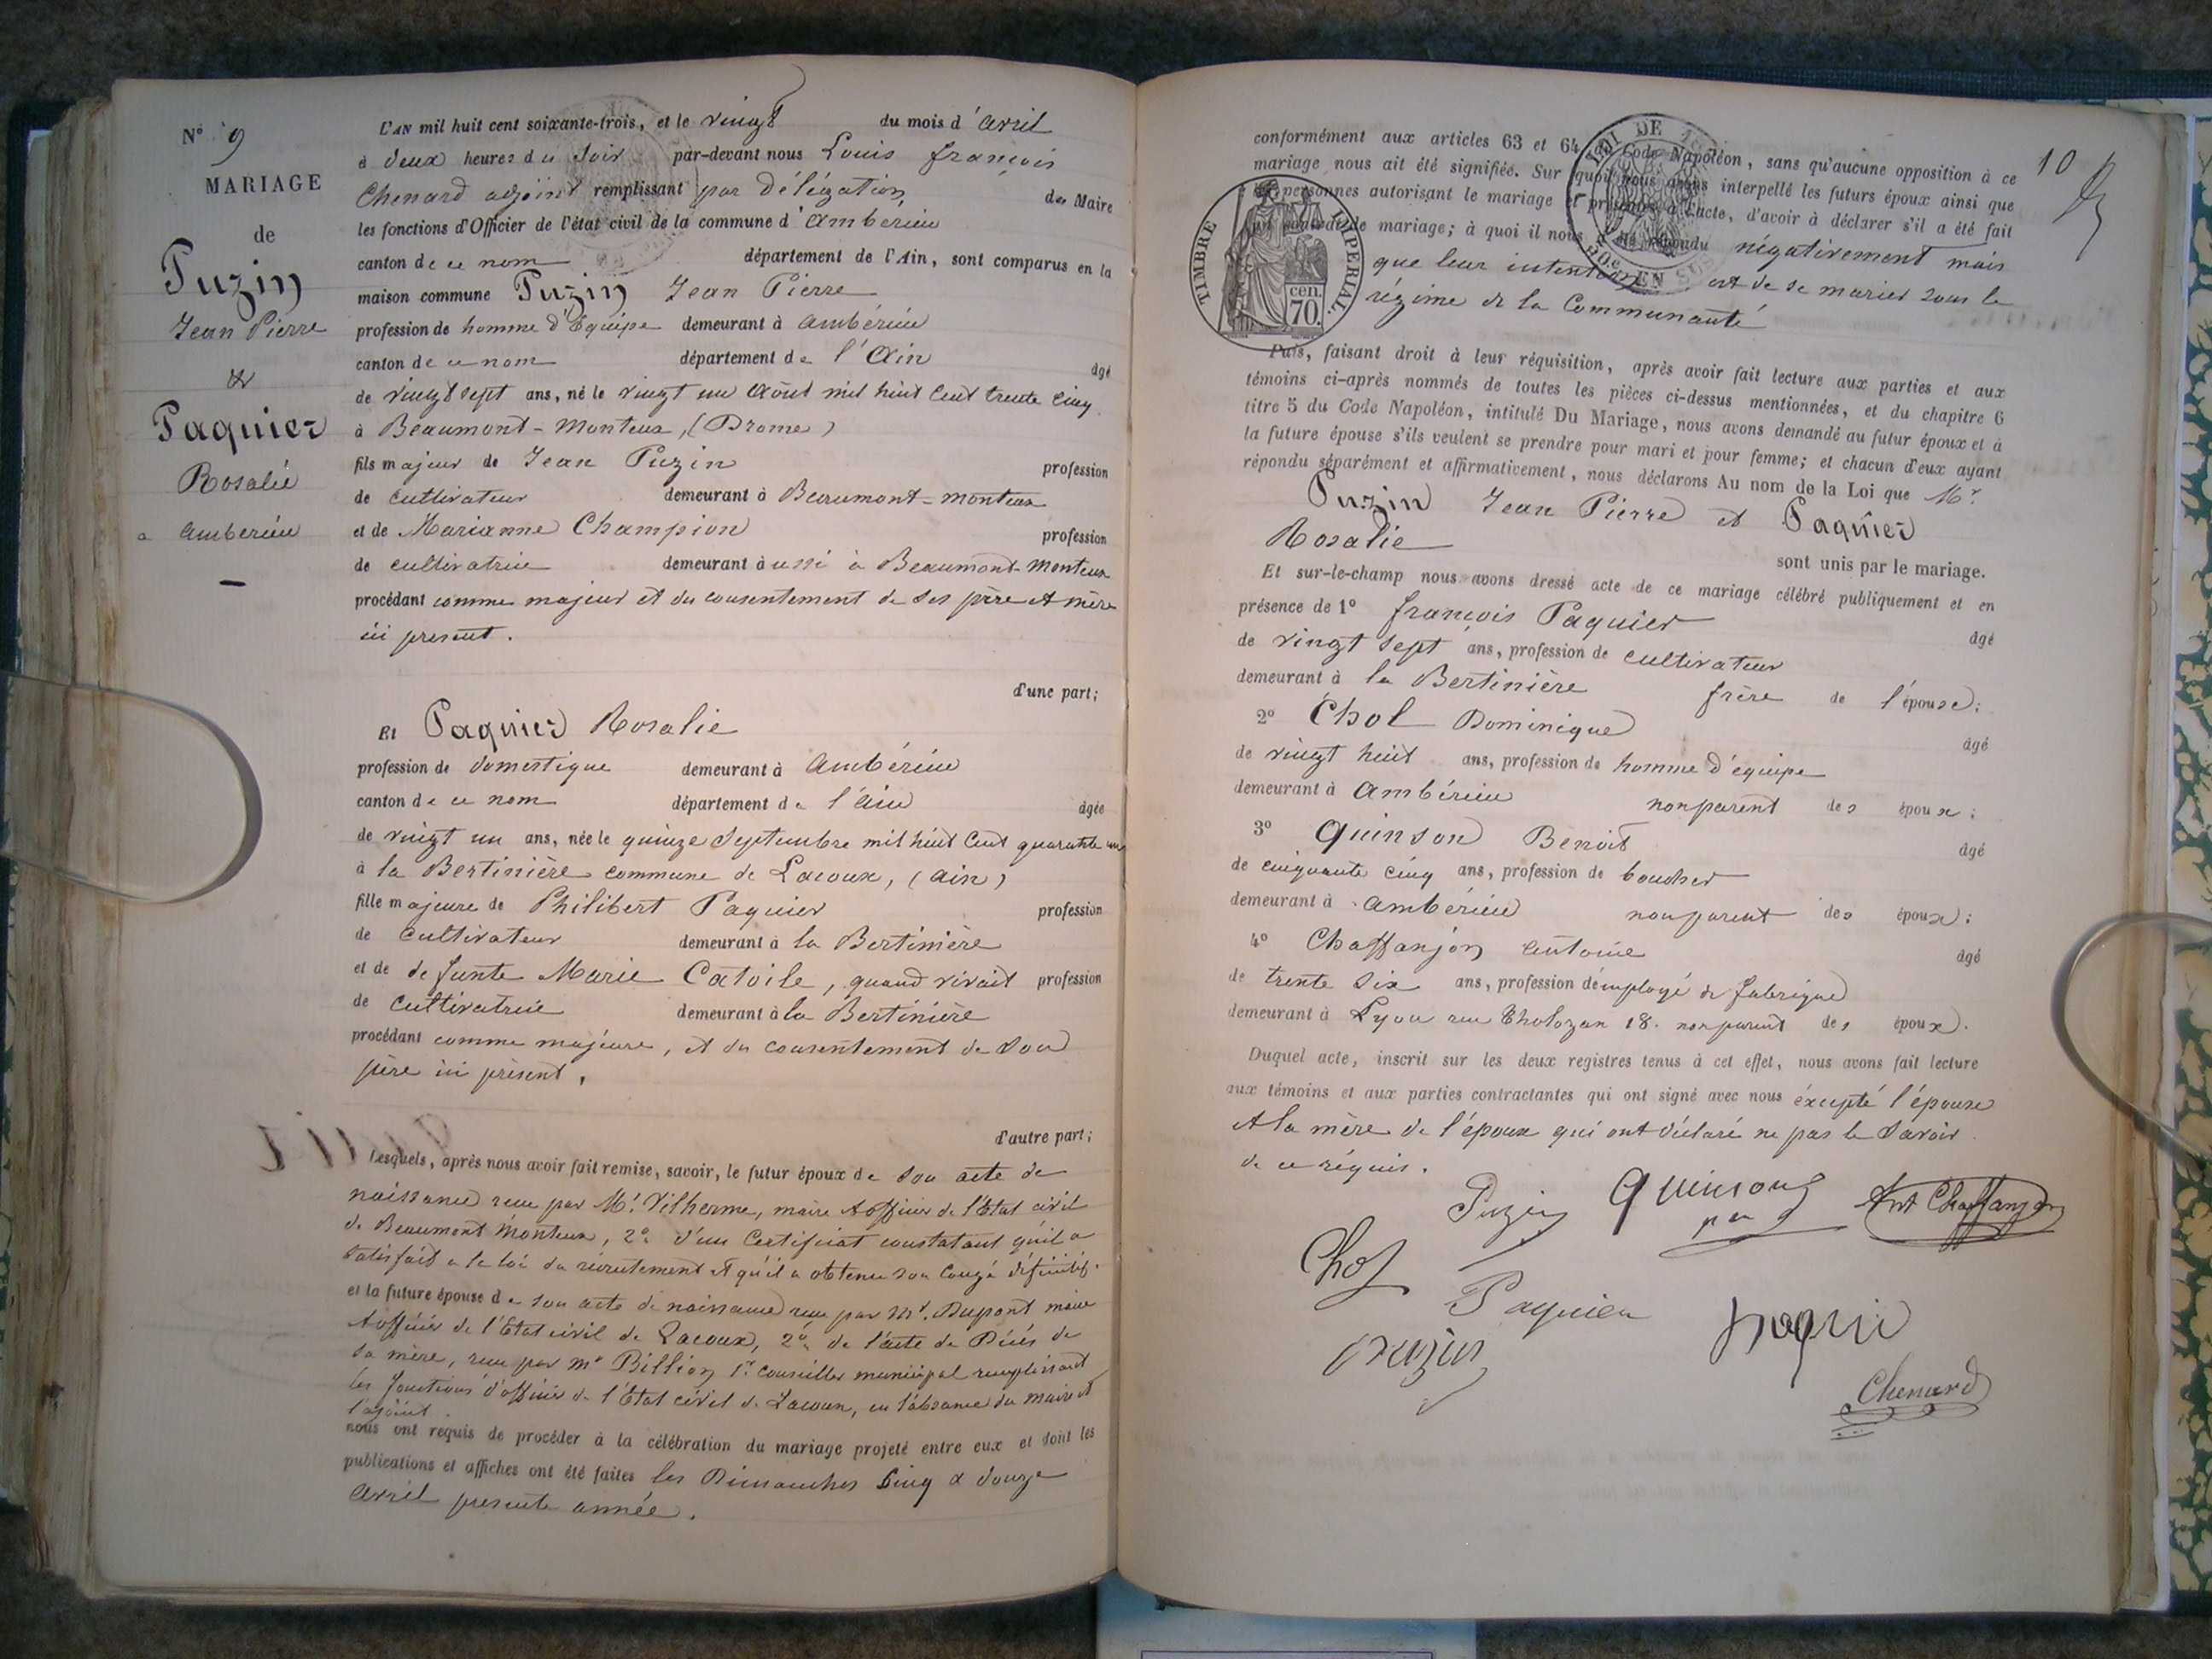 N° 9
MARIAGE
de
Puzin
Jean Pierre
&
Paquier
Rosalie
a ambérieu
L'AN mil huit cent soixante-trois, et le vingt du mois d'avril
à deux heures du soir par-devant nous Louis françois
Chenard adjoint remplissant par délégation, du Maire
les fonctions d'Officier de l'état civil de la commune d'ambérieu
canton de ce nom département de l'Ain, sont comparus en la
maison commune Puzin Jean Pierre
profession de homme d'équipe demeurant à ambérieu
canton de ce nom département de l'Ain âgé
de vingt sept ans, né le vingt un août mil huit cent trente cinq
à Beaumont-Monteux, (Drome)
fils majeur de Jean Puzin profession
de cultivateur demeurant à Beaumont-monteux
et de Marianne Champion profession
de cultivatrice demeurant aussi à Beaumont-Monteux
procédant comme majeur et du consentement de ses père et mère
ici présent.
d'une part;
Et Paquier Rosalie
profession de domestique demeurant à ambérieu
canton de ce nom département de l'ain âgée
de vingt un ans, née le quinze septembre mil huit cent quarante un
à la Bertinière commune de Lacoux, (ain)
fille majeure de Philibert Paquier profession
de cultivateur demeurant à la Bertinière
et de defunte Marie Catoile, quand vivait profession
de cultivatrice demeurant à la Bertinière
procédant comme majeure, et du consentement de son
père ici présent,
d'autre part;
Lesquels, après nous avoir fait remise, savoir, le futur époux de son acte de
naissance reçu par Mr. Vilherme, maire & officier de l'Etat civil
de Beaumont Monteux, 2° d'un Certificat constatant qu'il a
satisfait a la loi du recrutement et qu'il a obtenu son Congé définitif.
et la future épouse de son acte de naissance reçu par Mr. Dupont maire
& officier de l'Etat civil de Lacoux, 2° de l'acte de Décés de
sa mère, reçu par Mr Billion 1er Conseiller municipal remplissant
les fonctions d'officier de l'Etat civil de Lacoux, en l'absance du maire et
l'ajoint
nous ont requis de procéder à la célébration du mariage projeté entre eux et dont les
publications et affiches ont été faites les Dimanches Cinq & douze
avril presente année.
10
conformément aux articles 63 et 64 du Code Napoléon, sans qu'aucune opposition à ce
mariage nous ait été signifiée. Sur quoi nous avons interpellé les futurs époux ainsi que
les personnes autorisant le mariage et présentes à l'acte, d'avoir à déclarer s'il a été fait
un contrat de mariage; à quoi il nous a été répondu négativement mais
que leur intention est de se marier sous le
régime de la Communauté
TIMBRE IMPERIAL.
cen. 70.
LOI DE
50c EN SUS
Puis, faisant droit à leur réquisition, après avoir fait lecture aux parties et aux
témoins ci-après nommés de toutes les pièces ci-dessus mentionnées, et du chapitre 6
titre 5 du Code Napoléon, intitulé Du Mariage, nous avons demandé au futur époux et à
la future épouse s'ils veulent se prendre pour mari et pour femme; et chacun d'eux ayant
répondu séparément et affirmativement, nous déclarons Au nom de la Loi que Mr
Puzin Jean Pierre et Paquier
Rosalie sont unis par le mariage.
Et sur-le-champ nous avons dressé acte de ce mariage célébré publiquement et en
présence de 1° françois Paquier âgé
de vingt sept ans, profession de cultivateur
demeurant à la Bertinière frère de l'épouse;
2° Chol Dominique âgé
de vingt huit ans, profession de homme d'équipe
demeurant à ambérieu non parent des époux;
3° Quinson Benoit âgé
de cinquante cinq ans, profession de boucher
demeurant à ambérieu non parent des époux;
4° Chaffanjon antoine âgé
de trente six ans, profession d'employé de fabrique
demeurant à Lyon rue Tholozan 18. non parent des époux.
Duquel acte, inscrit sur les deux registres tenus à cet effet, nous avons fait lecture
aux témoins et aux parties contractantes qui ont signé avec nous éxcepté l'épouse
& la mère de l'époux qui ont déclaré ne pas le savoir
de ce réquis.
Puzin Quinson Ant Chaffanjon
Chol Paquier
Puzin
Chenard